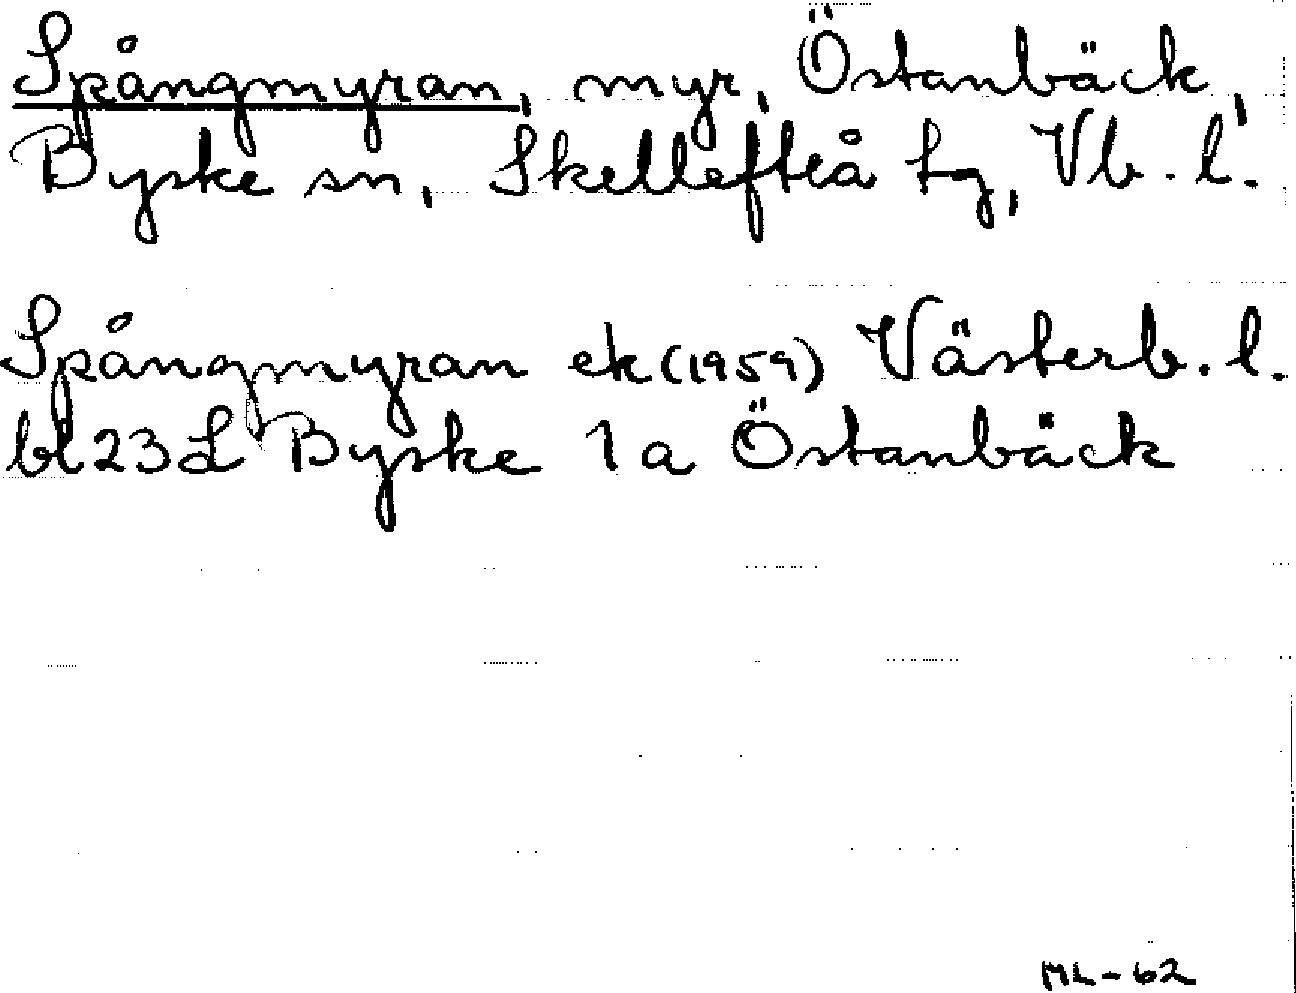 Spångmyran, myr, Östanbäck,
Byske sn, Skellefteå tg, Vb. l.
Spångmyran ek (1959) Västerb. l.
bl 23 L Byske 1 a Östanbäck
ML-62